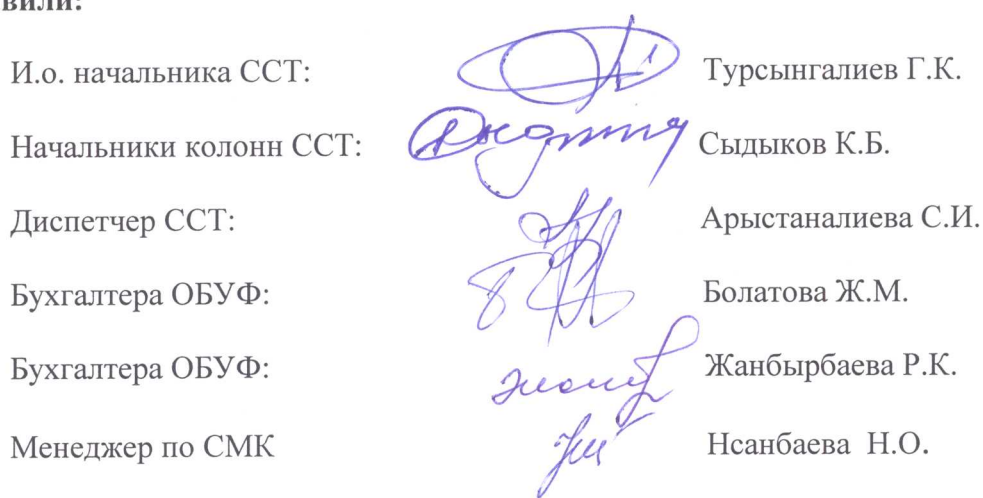 вили:
И.о. начальника ССТ: Турсынгалиев Г.К.
Начальники колонн ССТ: Сыдыков К.Б.
Диспетчер ССТ: Арыстаналиева С.И.
Бухгалтера ОБУФ: Болатова Ж.М.
Бухгалтера ОБУФ: Жанбырбаева Р.К.
Менеджер по СМК Нсанбаева Н.О.